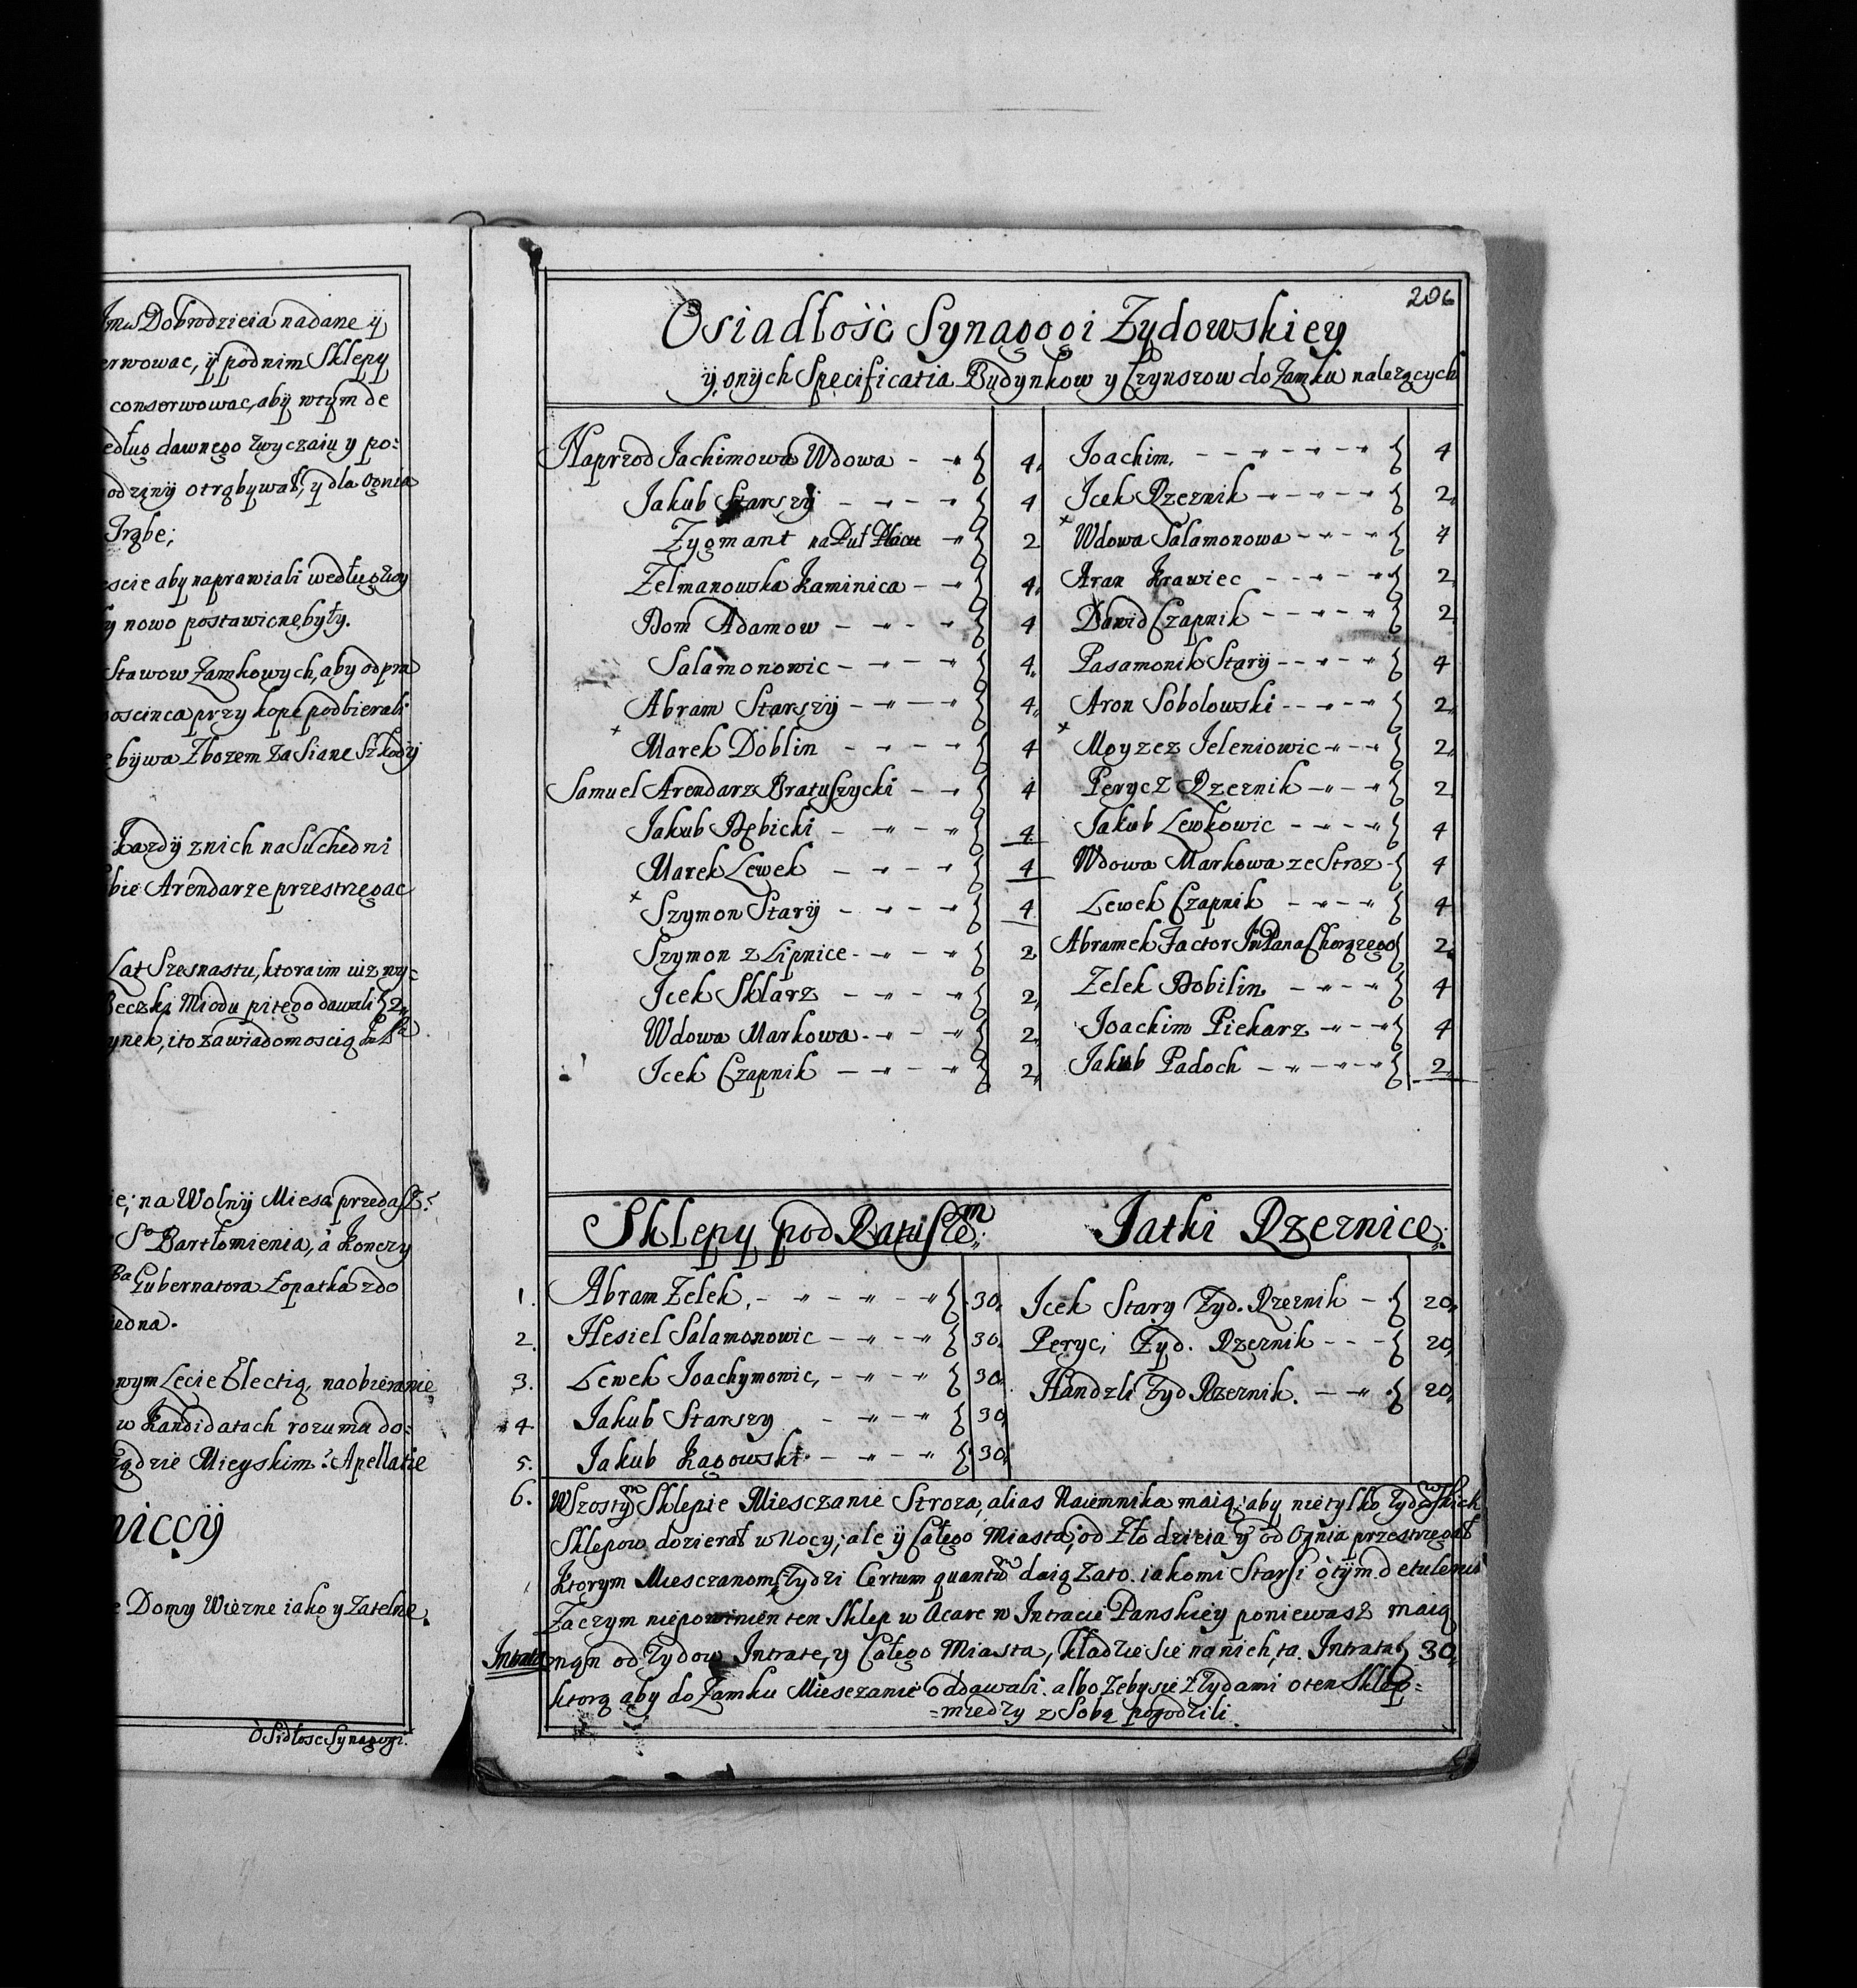 Dobrodzieia nadane ÿ
ÿ pod nim Sklepy
conserwowac, abÿ w tÿm de
dawnego zwyczaiu y po:
otrąbywał, y dla Ognia
Trąbe;
aby naprawiali według
nowo postawione były.
Stawow Zamkowych, aby odpra
przy kope podbierali
bÿwa Zbozem za Siane Szkodÿ
kazdÿ z nich na Suchedni
Arendarze przestrzegac
Lat Szesnastu, ktora im iuz wy:
Beczkę Miodu pitego dawali 2
ito za wiadomoscią
na Wolnÿ Miesa przedasz:
So Bartłomienia, à konczy
Gubernatora Łopatka zdo
iedna.
Lecie Electią, na obieranie
w kandidatach rozumu do:
Mieyskim: Apellatie
Domy Wiezne iako y Zatelne
Osidłosc Synagogi.
206
Osiadłośc Synagogi Zydowskiey
ÿ onÿch Specificatia Budynkow y Czynszow do Zamku nalezących
Naprzod Jachimowa Wdowa - - 4
Jakub Starszÿ - - - - 4
Zygmant na Puł Placu - 2
Zelmanowska Kaminica - - 4
Dom Adamow - - - - 4
Salamonowic - - - - 4
Abram Starszÿ - - - - 4
+ Marek Doblin - - - - 4
Samuel Arendarz Bratuszycki - - 4
Jakub Dębicki - - - - 4
Marek Lewek - - - - 4
+ Szymon Starÿ - - - - 4
Szymon z Lipnice - - - - 2
Icek Sklarz - - - - 2
Wdowa Markowa - - - - 2
Icek Czapnik - - - - 2
Joachim, - - - - - - 4
Icek Rzeznik - - - - - 2
+ Wdowa Salamonowa - - - - 4
Aran Krawiec - - - - 2
Dawid Czapnik - - - - - 2
Pasamonik Starÿ - - - - 4
Aron Sobolowski - - - - 2
+ Moyzez Jeleniowic - - - 2
Perycz Rzeznik - - - - 2
Jakub Lewkowic - - - - 4
Wdowa Markowa ze Stroz - 4
Lewek Czapnik - - - - 4
Abramek Factor Im Pana Chorązego 2
Zelek Dobilin - - - - 4
Joachim Piekarz - - - 4
Jakub Padoch - - - - - 2
Sklepy pod Ratuszem:
1. Abram Zelek, - - - - - - 30
2. Hesiel Salamonowic - - - - 30
3. Lewek Joachymowic, - - - - 30
4. Jakub Starszy - - - - 30
5. Jakub Kagowski - - - - 30
Jatki Rzeznice:
Icek Stary Zyd. Rzeznik - - 20
Peryc; Zyd. Rzeznik - - - 20
Handzli Zyd Rzeznik. - - - 20
6. W Szostym Sklepie Miesczanie Stroza, alias Naiemnika maią; aby nie tylko Zydowskich
Sklepow dozierał w Nocy; ale ÿ Całego Miasta; od Zło dzieia ÿ od Ognia przestrzegał
Ktorym Miesczanom, Zydzi Certum quantum daią Zato. iako mi Starsi o tÿm detulerunt
Zaczym niepowinien ten Sklep w Acare w Intracie Panskiey poniewasz maią
Intrata od Zydow Intrate, y Całego Miasta, kładzie sie na nich, ta. Intrata 30
ktorą aby do Zamku Miesczanie oddawali. albo Zeby sie z Zydami o ten Sklep=
=miedzy z Sobą pogodzili.